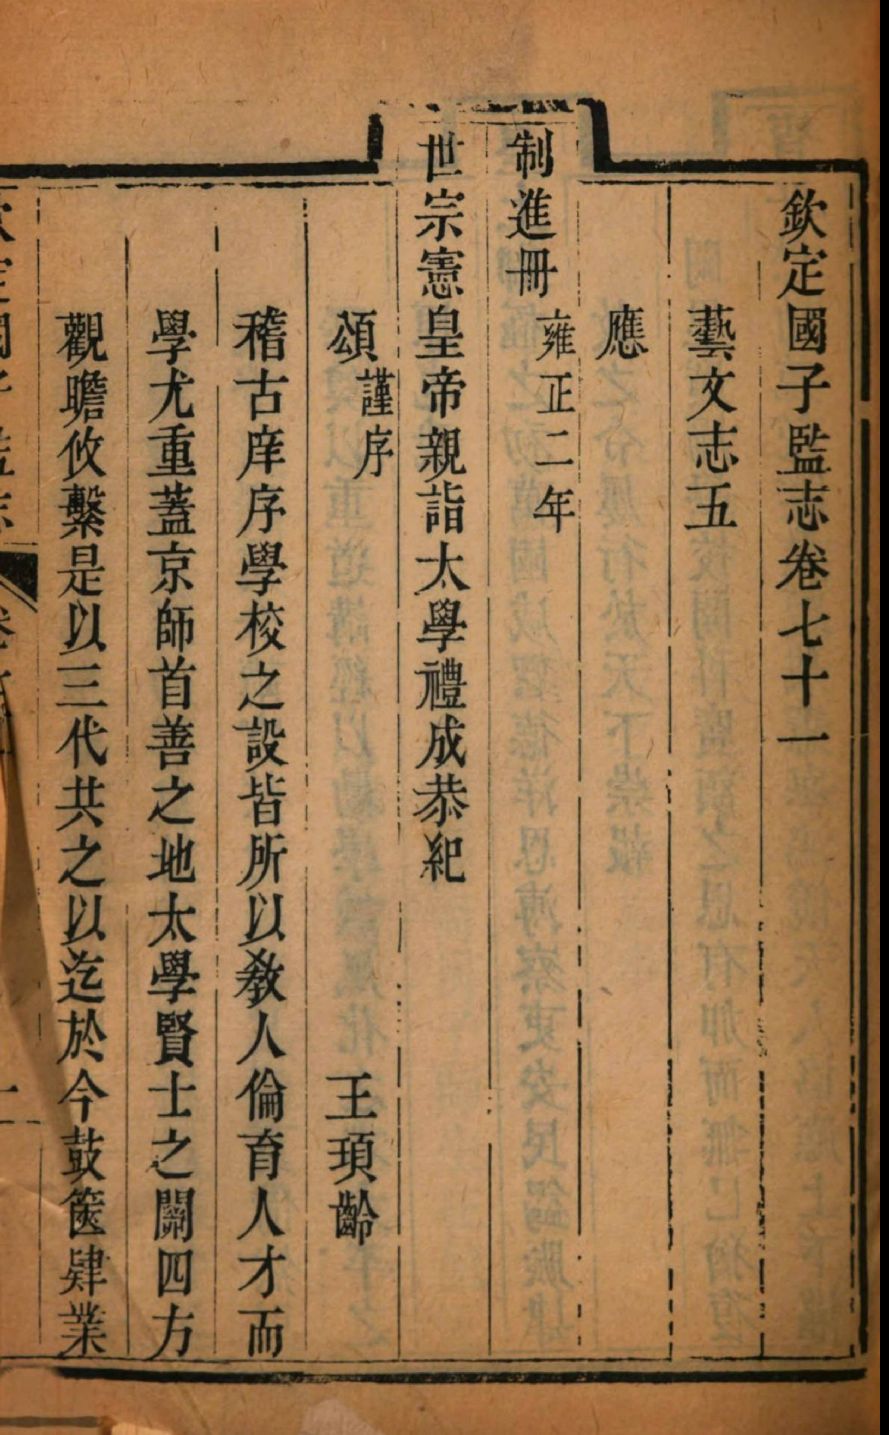 欽定國子監志卷七十一
藝文志五
應
制進冊 雍正二年
世宗憲皇帝親詣太學禮成恭紀
頌 謹序 王頊齡
稽古庠序學校之設皆所以敎人倫育人才而
學尤重蓋京師首善之地太學賢士之關四方
觀瞻攸繫是以三代共之以迄於今鼓篋肄業